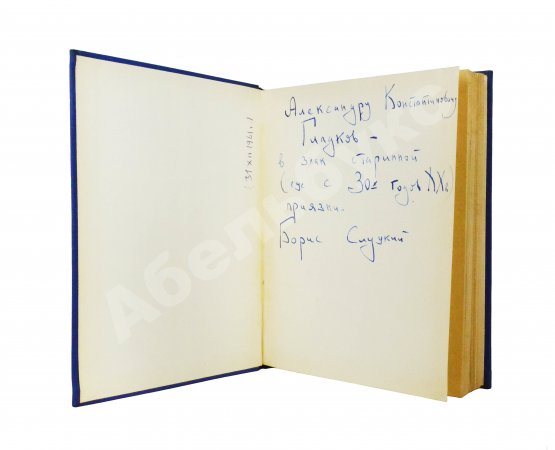 (31 XII 1961.)
Александру Константиновичу
Гладков –
в знак старинной
(еще с 30х годов ХХв)
приязни.
Борис Слуцкий
Абельбукс